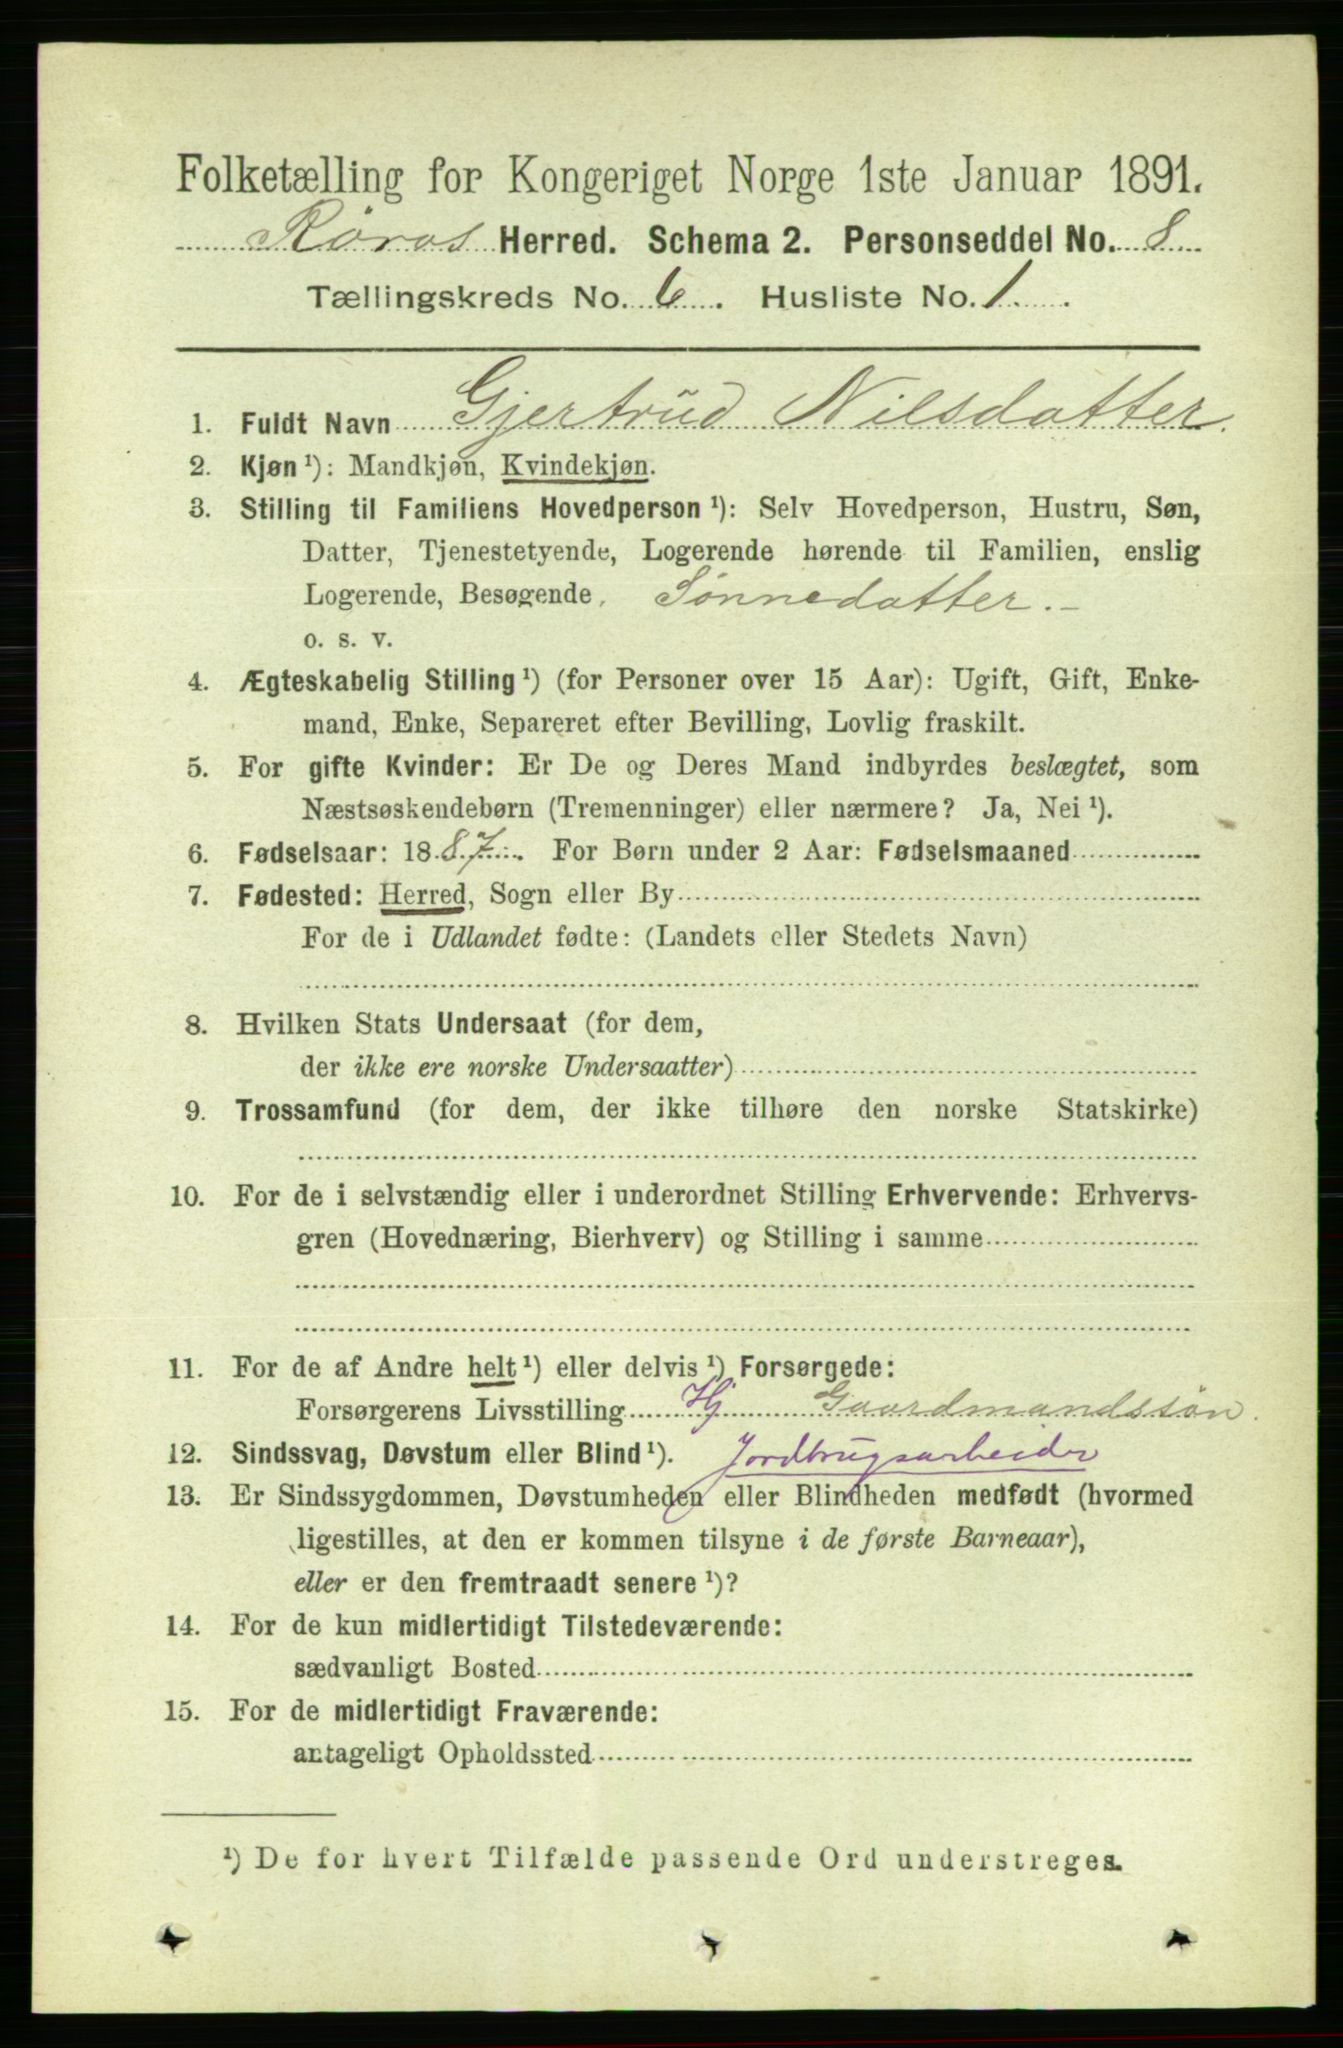 Folketælling for Kongeriget Norge 1ste Januar 1891.
Røros Herred. Schema 2. Personseddel No. 8
Tællingskreds No. 6. Husliste No. 1.
1. Fuldt Navn Gjertrud Nilsdatter.
2. Kjøn ¹): Mandkjøn, Kvindekjøn.
3. Stilling til Familiens Hovedperson ¹): Selv Hovedperson, Hustru, Søn,
Datter, Tjenestetyende, Logerende hørende til Familien, enslig
Logerende, Besøgende. Sønnedatter.-
o. s. v.
4. Ægteskabelig Stilling ¹) (for Personer over 15 Aar): Ugift, Gift, Enke-
mand, Enke, Separeret efter Bevilling, Lovlig fraskilt.
5. For gifte Kvinder: Er De og Deres Mand indbyrdes beslægtet, som
Næstsøskendebørn (Tremenninger) eller nærmere? Ja, Nei ¹).
6. Fødselsaar: 1887. For Børn under 2 Aar: Fødselsmaaned
7. Fødested: Herred, Sogn eller By
For de i Udlandet fødte: (Landets eller Stedets Navn)
8. Hvilken Stats Undersaat (for dem,
der ikke ere norske Undersaatter)
9. Trossamfund (for dem, der ikke tilhøre den norske Statskirke)
10. For de i selvstændig eller i underordnet Stilling Erhvervende: Erhvervs-
gren (Hovednæring, Bierhverv) og Stilling i samme
11. For de af Andre helt ¹) eller delvis ¹) Forsørgede:
Forsørgerens Livsstilling Hj Gaardmandssøn.
12. Sindssvag, Døvstum eller Blind ¹). Jordbrugsarbeider
13. Er Sindssygdommen, Døvstumheden eller Blindheden medfødt (hvormed
ligestilles, at den er kommen tilsyne i de første Barneaar),
eller er den fremtraadt senere ¹)?
14. For de kun midlertidigt Tilstedeværende:
sædvanligt Bosted
15. For de midlertidigt Fraværende:
antageligt Opholdssted
¹) De for hvert Tilfælde passende Ord understreges.